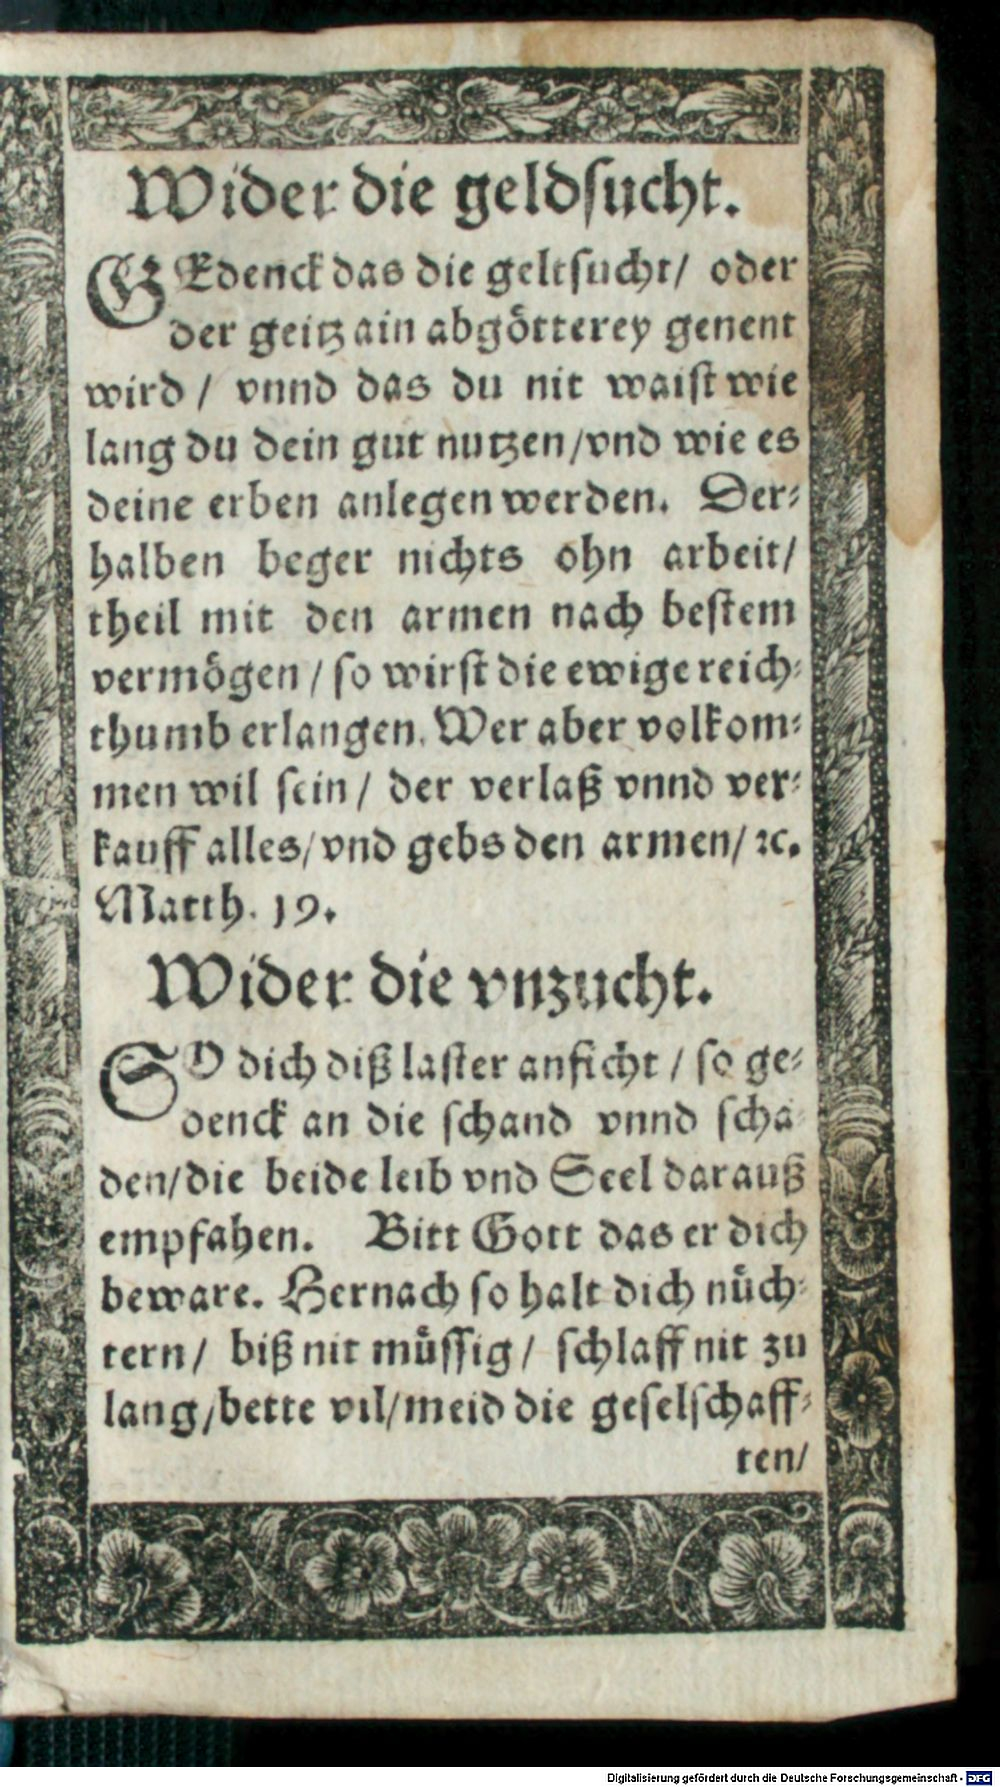 Wider die geldsucht.
GEdenck das die geltsucht/ oder
der geitz ain abgötterey genent
wird / vnnd das du nit waist wie
lang du dein gut nutzen/vnd wie es
deine erben anlegen werden. Der-
halben beger nichts ohn arbeit/
theil mit den armen nach bestem
vermögen / so wirst die ewige reich-
thumb erlangen. Wer aber volkom-
men wil sein / der verlaß vnnd ver-
kauff alles/vnd gebs den armen/ ꝛc.
Matth. 19.
Wider die vnzucht.
SO dich diß laster anficht / so ge-
denck an die schand vnnd scha-
den/die beide leib vnd Seel darauß
empfahen. Bitt Gott das er dich
beware. Hernach so halt dich nüch-
tern/ biß nit müssig/ schlaff nit zu
lang/bette vil/meid die geselschaff-
ten/
Digitalisierung gefördert durch die Deutsche Forschungsgemeinschaft - DFG